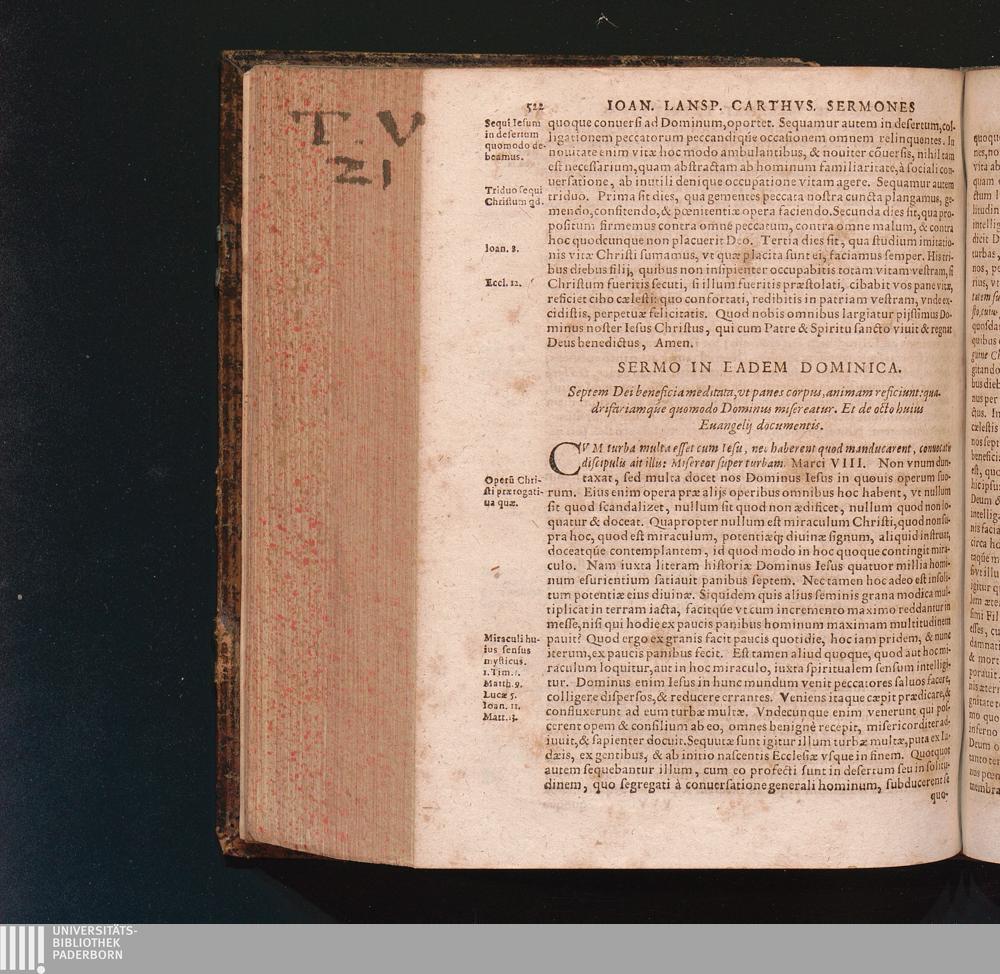 T. V
21
522 IOAN. LANSP. CARTHVS. SERMONES
Sequi Iesum
in desertum
quomodo de-
beamus.
Triduo sequi
Christum qd.
Ioan. 8.
Eccl. 12.
quoque conuersi ad Dominum, oportet. Sequamur autem in desertum, col-
ligationem peccatorum peccandique occasionem omnem relinquentes. In
nouitate enim vitæ hoc modo ambulantibus, & nouiter cōuersis, nihil tam
est necessarium, quam abstractam ab hominum familiaritate, à sociali con-
uersatione, ab inutili denique occupatione vitam agere. Sequamur autem
triduo. Prima sit dies, qua gementes peccata nostra cuncta plangamus, ge-
mendo, confitendo, & pœnitentiæ opera faciendo. Secunda dies sit, qua pro-
positum firmemus contra omnē peccatum, contra omne malum, & contra
hoc quodcunque non placuerit Deo. Tertia dies sit, qua studium imitatio-
nis vitæ Christi sumamus, vt quæ placita sunt ei, faciamus semper. His tri-
bus diebus filij, quibus non insipienter occupabitis totam vitam vestram, si
Christum fueritis secuti, si illum fueritis præstolati, cibabit vos pane vitæ,
reficiet cibo cælesti: quo confortati, redibitis in patriam vestram, vnde ex-
cidistis, perpetuæ felicitatis. Quod nobis omnibus largiatur pijssimus Do-
minus noster Iesus Christus, qui cum Patre & Spiritu sancto viuit & regnat
Deus benedictus, Amen.
SERMO IN EADEM DOMINICA.
Septem Dei beneficia meditata, vt panes corpus, animam reficiunt: qua-
drifariamque quomodo Dominus misereatur. Et de octo huius
Euangelij documentis.
Operū Chri-
sti prærogati-
ua quæ.
Miraculi hu-
ius sensus
mysticus.
1. Tim. 1.
Matth. 9.
Lucæ 5.
Ioan. 11.
Matt. 13.
CVM turba multa esset cum Iesu, nec haberent quod manducarent, conuocatis
discipulis ait illis: Misereor super turbam. Marci VIII. Non vnum dun-
taxat, sed multa docet nos Dominus Iesus in quouis operum suo-
rum. Eius enim opera præ alijs operibus omnibus hoc habent, vt nullum
sit quod scandalizet, nullum sit quod non ædificet, nullum quod non lo-
quatur & doceat. Quapropter nullum est miraculum Christi, quod non su-
pra hoc, quod est miraculum, potentiæq; diuinæ signum, aliquid instruat,
doceatque contemplantem, id quod modo in hoc quoque contingit mira-
culo. Nam iuxta literam historiæ Dominus Iesus quatuor millia homi-
num esurientium satiauit panibus septem. Nec tamen hoc adeo est insoli-
tum potentiæ eius diuinæ. Siquidem quis alius seminis grana modica mul-
tiplicat in terram iacta, facitque vt cum incremento maximo reddantur in
messe, nisi qui hodie ex paucis panibus hominum maximam multitudinem
pauit? Quod ergo ex granis facit paucis quotidie, hoc iam pridem, & nunc
iterum, ex paucis panibus fecit. Est tamen aliud quoque, quod aut hoc mi-
raculum loquitur, aut in hoc miraculo, iuxta spiritualem sensum intelligi-
tur. Dominus enim Iesus in hunc mundum venit peccatores saluos facere,
colligere dispersos, & reducere errantes. Veniens itaque cæpit prædicare, &
confluxerunt ad eum turbæ multæ. Vndecunque enim venerunt qui pos-
cerent opem & consilium ab eo, omnes benignè recepit, misericorditer ad-
iuuit, & sapienter docuit. Sequutæ sunt igitur illum turbæ multæ, puta ex Iu-
dæis, ex gentibus, & ab initio nascentis Ecclesiæ vsque in finem. Quotquot
autem sequebantur illum, cum eo profecti sunt in desertum seu in solitu-
dinem, quo segregati à conuersatione generali hominum, subducerent se
quo-
UNIVERSITÄTS-
BIBLIOTHEK
PADERBORN